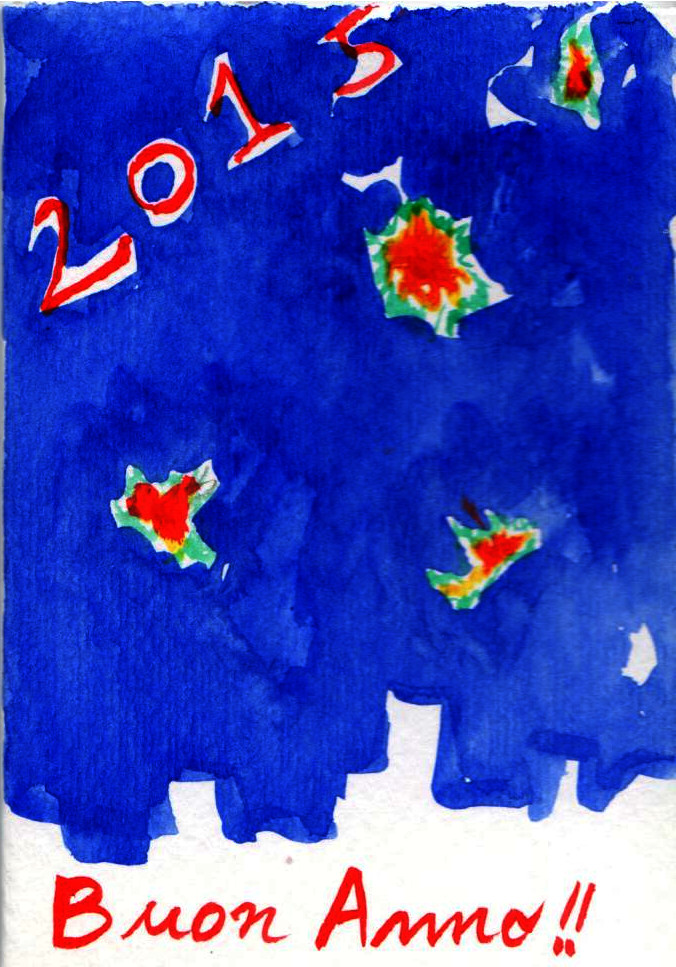 2015
Buon Anno!!